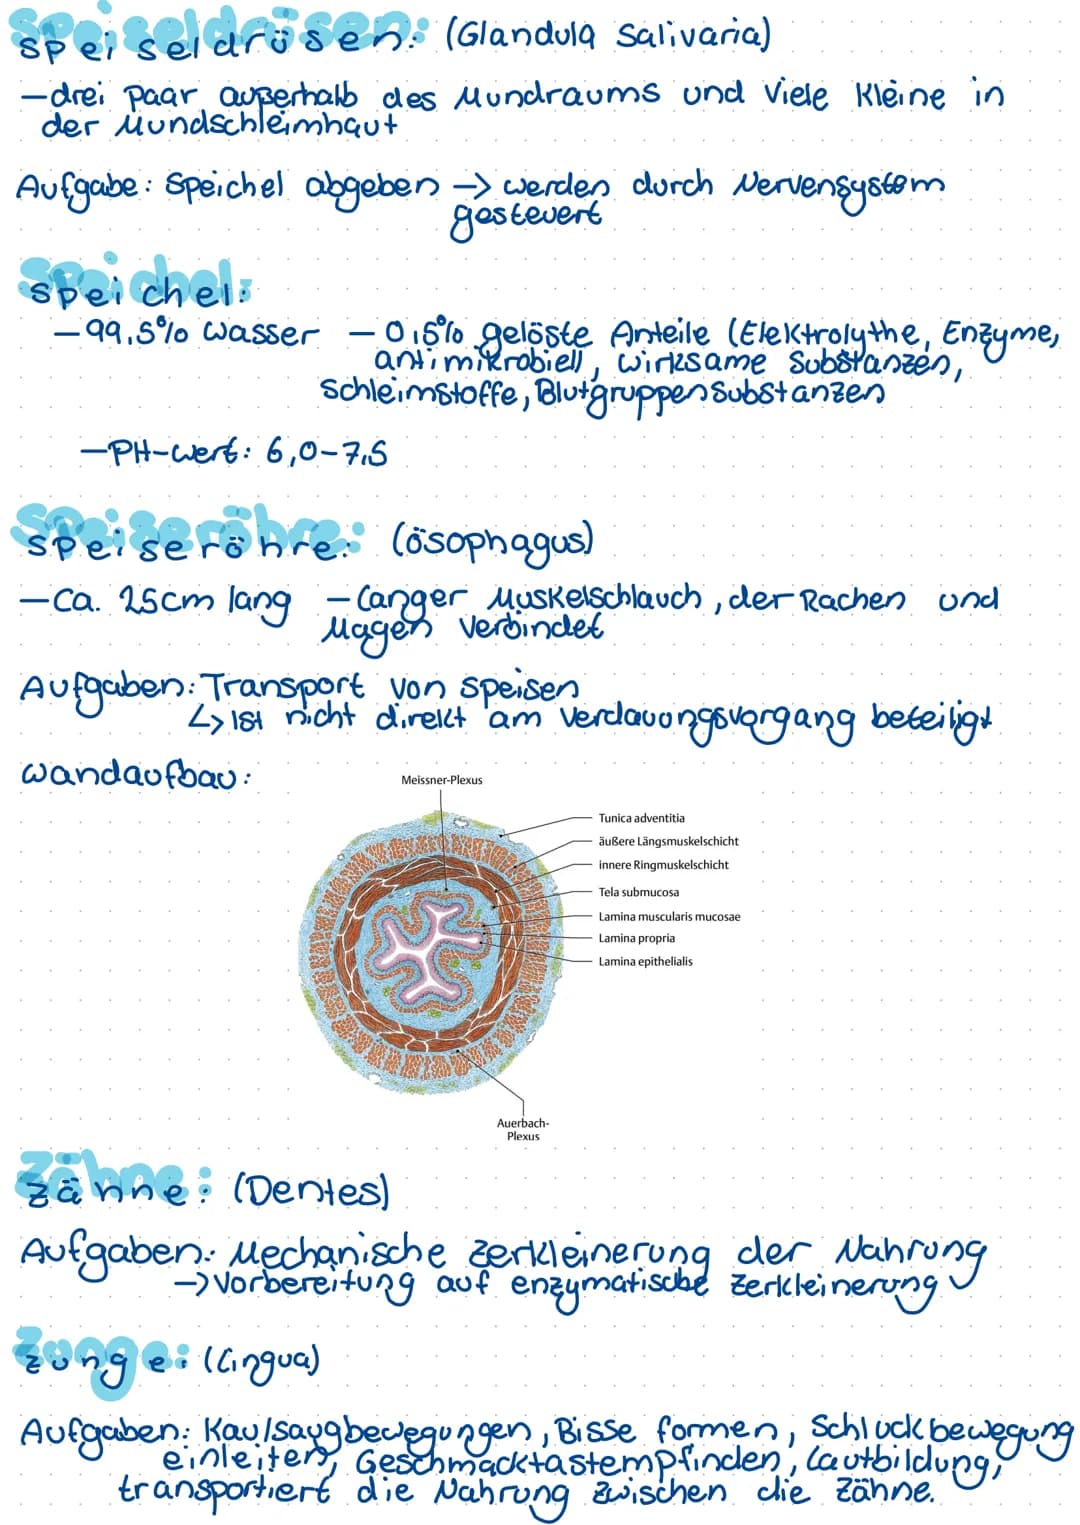 Speiseldrüsen: (Glandula Salivaria)
– drei Paar außerhalb des Mundraums und viele kleine in
der Mundschleimhaut
Aufgabe: Speichel abgeben → werden durch Nervensystem
gesteuert
Speichel:
– 99,5% Wasser – 0,5% gelöste Anteile (Elektrolythe, Enzyme,
antimikrobiell, wirksame Substanzen,
Schleimstoffe, Blutgruppensubstanzen
– PH-Wert: 6,0-7,5
Speiseröhre: (ösophagus)
– Ca. 25cm lang – langer Muskelschlauch, der Rachen und
Magen verbindet
Aufgaben: Transport von Speisen
↳ ist nicht direkt am Verdauungsvorgang beteiligt
Wandaufbau:
Meissner-Plexus
Tunica adventitia
äußere Längsmuskelschicht
innere Ringmuskelschicht
Tela submucosa
Lamina muscularis mucosae
Lamina propria
Lamina epithelialis
Auerbach-
Plexus
Zähne: (Dentes)
Aufgaben: Mechanische Zerkleinerung der Nahrung
→ Vorbereitung auf enzymatische Zerkleinerung
Zunge: (Lingua)
Aufgaben: Kau/saugbewegungen, Bisse formen, Schluckbewegung
einleiten, Geschmacktastempfinden, Lautbildung,
transportiert die Nahrung zwischen die Zähne.